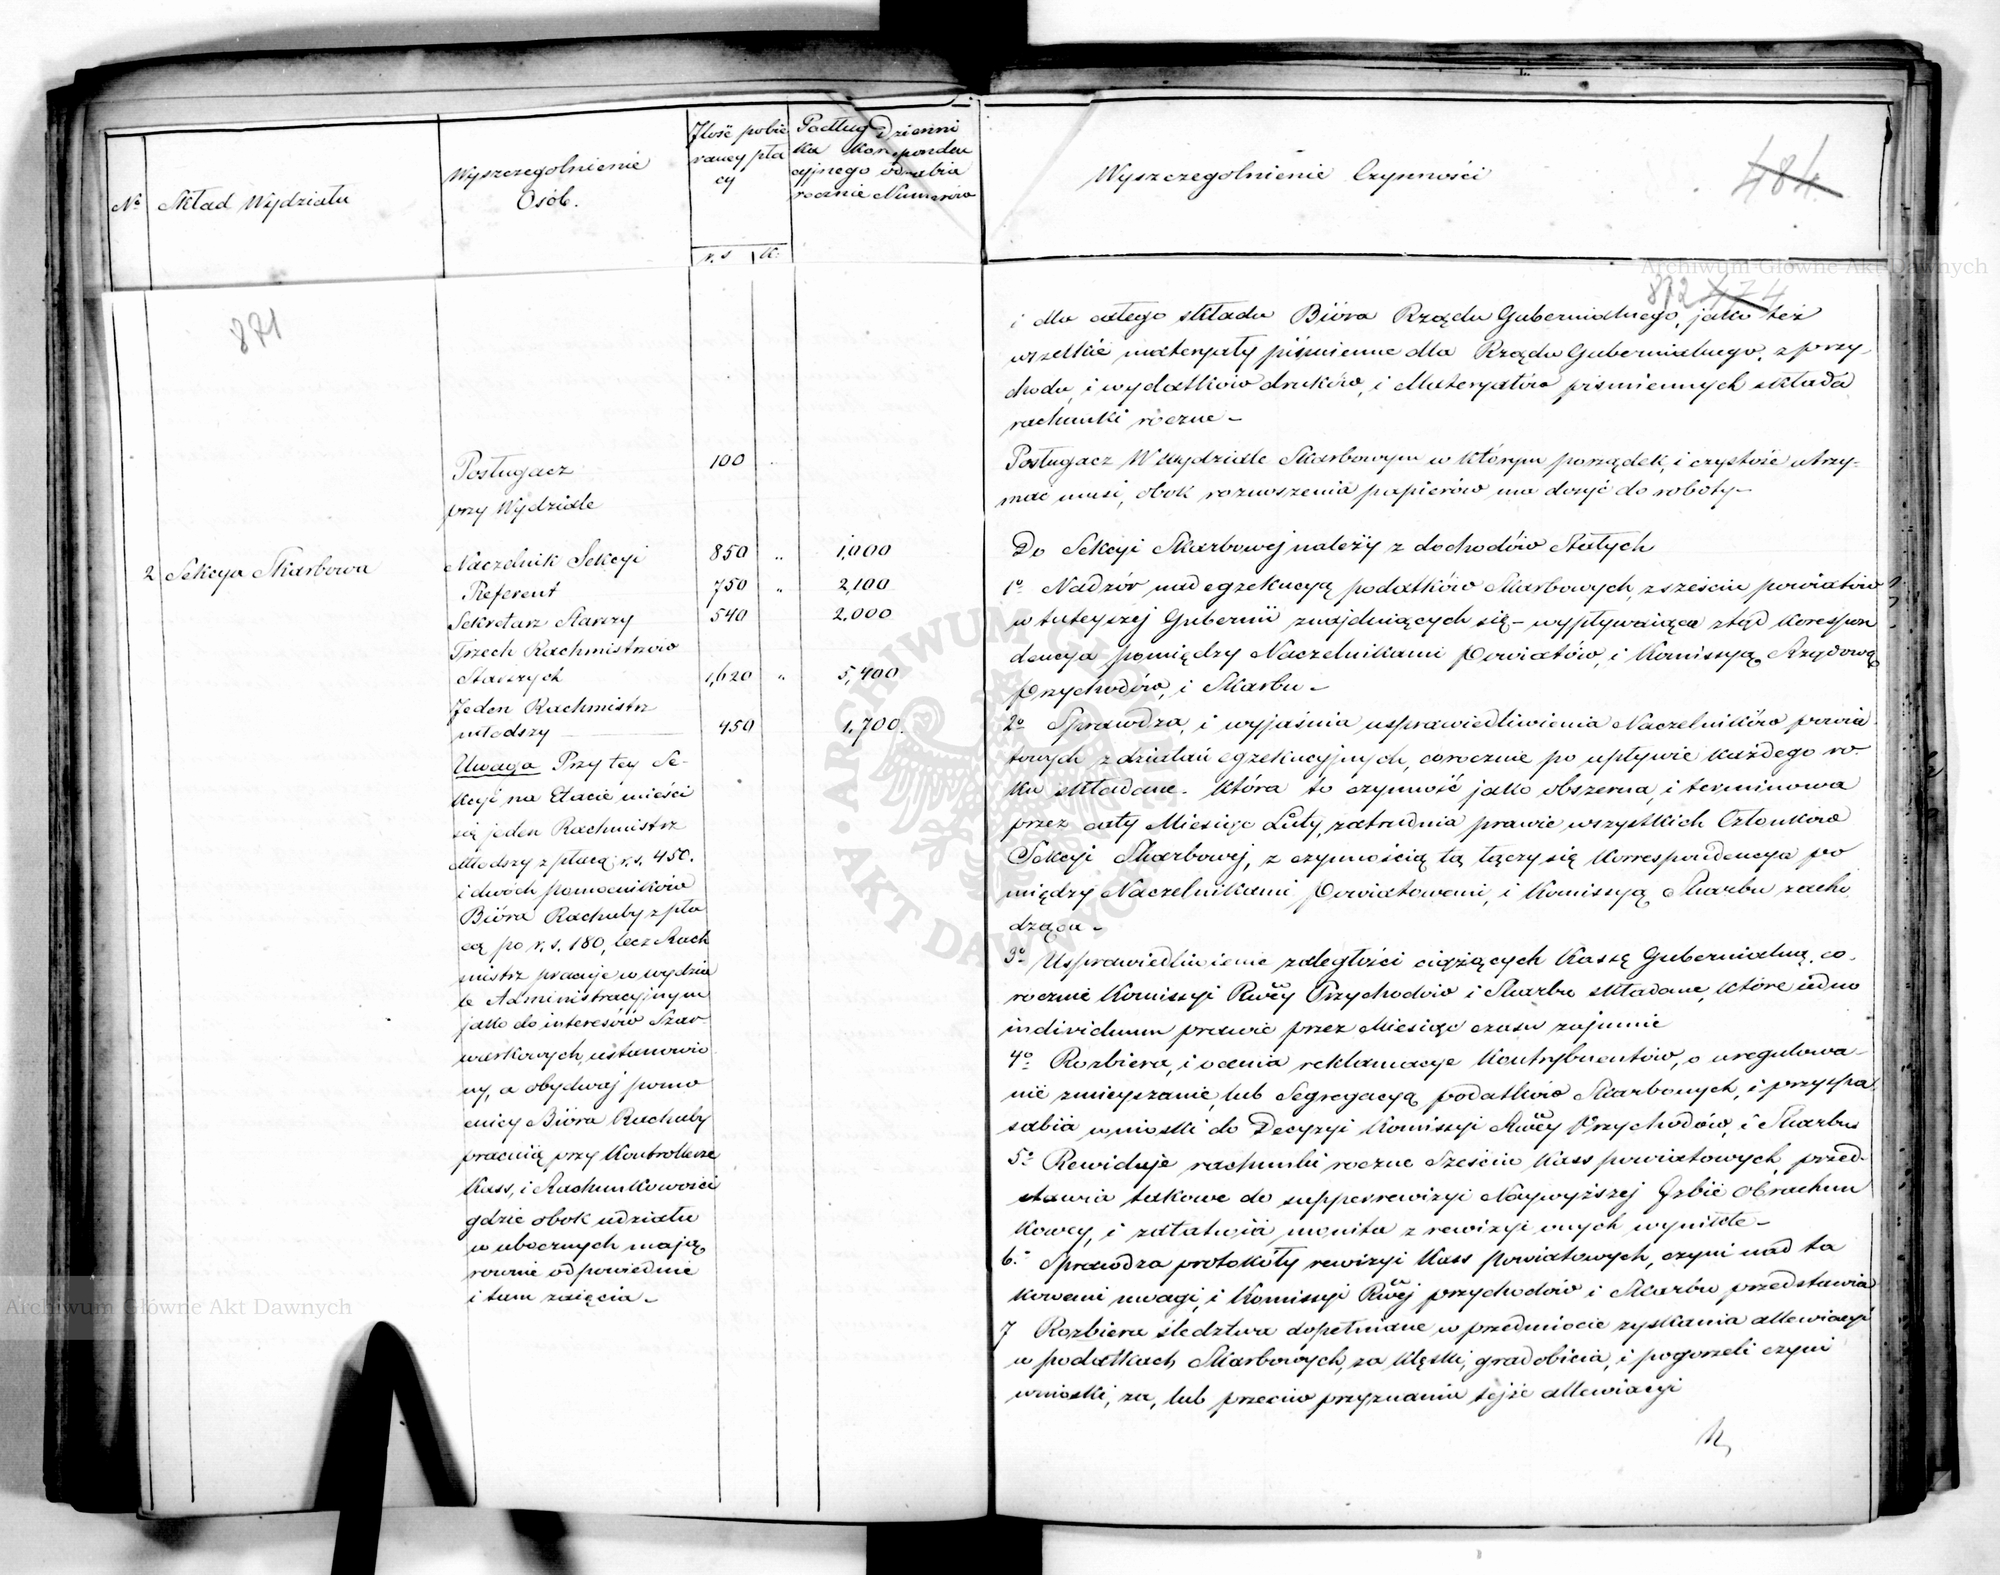 No
Skład Wydziału
Wyszczegolnienie
Osób.
Ilość pobie
raney pła
cy
r. s k.
Podług Dzienni
ka Korrsponden
cyjnego odrabia
rocznie Numerów
Wyszczegolnienie Czynności
484
871
872 474
Posługacz 100
przy Wydziale
2 Sekcya Skarbowa
Naczelnik Sekcyi 850 „ 1,000
Referent 750 „ 2,100
Sekretarz Starszy 540 2.000
Trzech Rachmistrzów
Starszych 1,620 „ 5,400
Jeden Rachmistrz
młodszy 450 1,700.
Uwaga Przy tey Se-
kcyi na Etacie mieści
się jeden Rachmistrz
Młodszy z płacą r. s. 450.
i dwóch pomocników
Bióra Rachuby z pła
cą po r. s. 180, lecz Rach
mistrz pracuje w wydzia
le Administracyjnym
jako do interesów Szar-
warkowych, ustanowio
ny, a obydwaj pomo
cnicy Bióra Rachuby
pracują przy Kontrolerze
Kass, i Rachunkowości
gdzie obok udziału
w ubocznych mają
rownie odpowiednie
i tam zaięcia –
i dla całego składu Bióra Rządu Gubernialnego, jako też
wszelkie materyały piśmienne dla Rządu Gubernialnego, z przy-
chodu, i wydatków druków, i Materyałów pismiennych składa
rachunki roczne –
Posługacz W wydziale Skarbowym w którym porządek, i czystość utrzy-
mać musi, obok roznoszenia papierów ma dosyć do roboty –
Do Sekcyi Skarbowej należy z dochodów Stałych
1o Nadzór nad egzekucyą podatków Skarbowych, z sześciu powiatów
w tuteyszej Gubernii znajdujących się – wypływająca ztąd Korespon
dencya pomiędzy Naczelnikami Powiatów, i Kommissyą Rządową
Przychodów, i Skarbu –
2o Sprawdza, i wyjaśnia usprawiedliwienia Naczelników powia
towych z działań egzekucyjnych, corocznie po upływie każdego ro-
ku składane. Która to czynność jako obszerna, i terminowa
przez cały Miesiąc Luty, zatrudnia prawie wszystkich Członków
Sekcyi Skarbowej, z czynnością tą łączy się Korrespondencya po
między Naczelnikami Powiatowemi, i Komissyą Skarbu zacho
dząca –
3o Usprawiedliwienie zaległości ciążących Kassę Gubernialną, co-
rocznie Komissyi Rwéy Przychodów i Skarbu składane, które iedno
individuum prawie przez Miesiąc czasu zajmuie
4o Rozbiera, i ocenia reklamacye Kontrybuentów, o uregulowa-
nie zmieyszanie, lub Segregacyą podatków Skarbowych, i przyspa
sabia wnioski do Decyzyi Komissyi Rwéy Przychodów, i Skarbu
5o Rewiduje rachunki roczne Sześciu Kass powiatowych, przed-
stawia takowe do supperrewizyi Naywyższej Izbie Obrachun
kowey, i załatwia monita z rewizyi onych wynikłe –
6o Sprawdza protokóły rewizyi Kass powiatowych, czyni nad ta
kowemi uwagi, i Komissyi Rwéj przychodów i Skarbu przedstawia
7 Rozbiera śledztwa dopełniane w przedmiocie zyskania allewiacyi
w podatkach Skarbowych, za klęski, gradobicia, i pogorzeli czyni
wnioski, za, lub przeciw przyznaniu tejże allewiacyi
Archiwum Główne Akt Dawnych
Archiwum Główne Akt Dawnych
ARCHIWUM GŁÓWNE AKT DAWNYCH